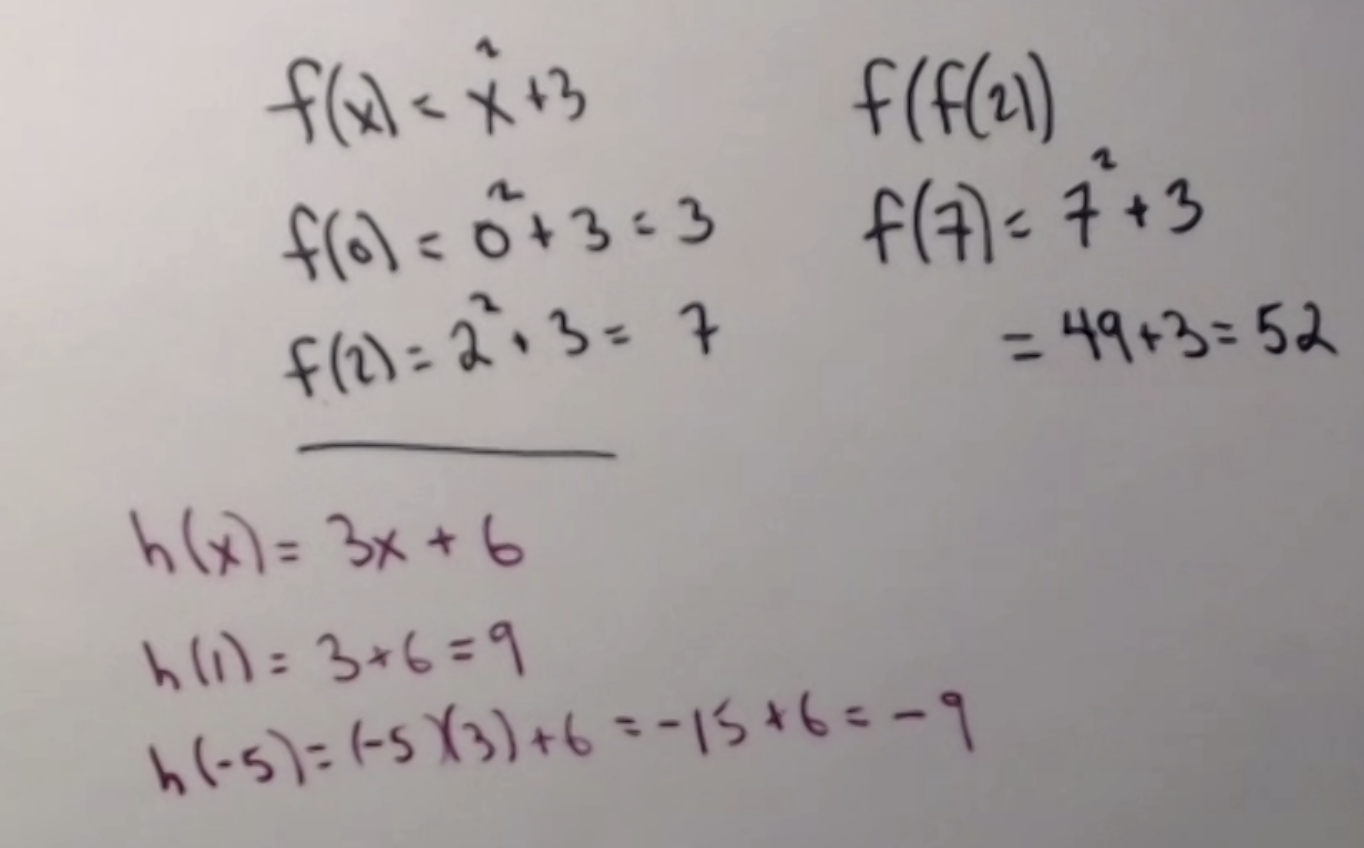 f(x) = x² + 3
f(0) = 0² + 3 = 3
f(2) = 2² + 3 = 7
f(f(2))
f(7) = 7² + 3
= 49 + 3 = 52
h(x) = 3x + 6
h(1) = 3 + 6 = 9
h(-5) = (-5)(3) + 6 = -15 + 6 = -9